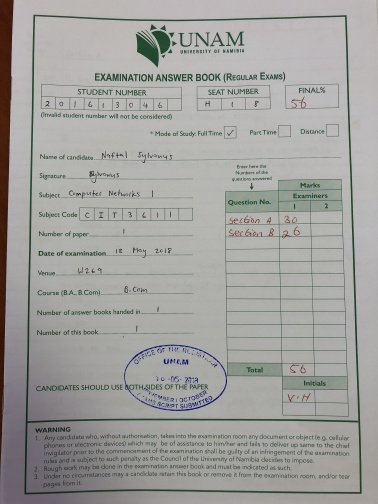 UNAM
UNIVERSITY OF NAMIBIA
EXAMINATION ANSWER BOOK (REGULAR EXAMS)
STUDENT NUMBER SEAT NUMBER FINAL%
2 0 1 6 1 3 0 4 6 H 1 8 56
(Invalid student number will not be considered)
* Mode of Study: Full Time ✓ Part Time Distance
Name of candidate Naftal Sylvanus
Signature Sylvanus
Subject Computer Networks 1
Subject Code C I T 3 6 1 1
Number of paper 1
Date of examination 18 May 2018
Venue W269
Course (B.A., B.Com) B.Com
Number of answer books handed in 1
Number of this book 1
Enter here the
Numbers of the
questions answered
Marks
Question No. Examiners
1 2
Section A 30
Section B 26
Total 56
Initials
V.H
OFFICE OF THE REGISTRAR
UNAM
SCRIPT SUBMITTED
CANDIDATES SHOULD USE BOTH SIDES OF THE PAPER
WARNING
1. Any candidate who, without authorisation, takes into the examination room any document or object (e.g. cellular
phones or electronic devices) which may be of assistance to him/her and fails to deliver up same to the chief
invigilator prior to the commencement of the examination shall be guilty of an infringement of the examination
rules and is subject to such penalty as the Council of the University of Namibia decides to impose.
2. Rough work may be done in the examination answer book and must be indicated as such.
3. Under no circumstances may a candidate retain this book or remove it from the examination room, and/or tear
pages from it.